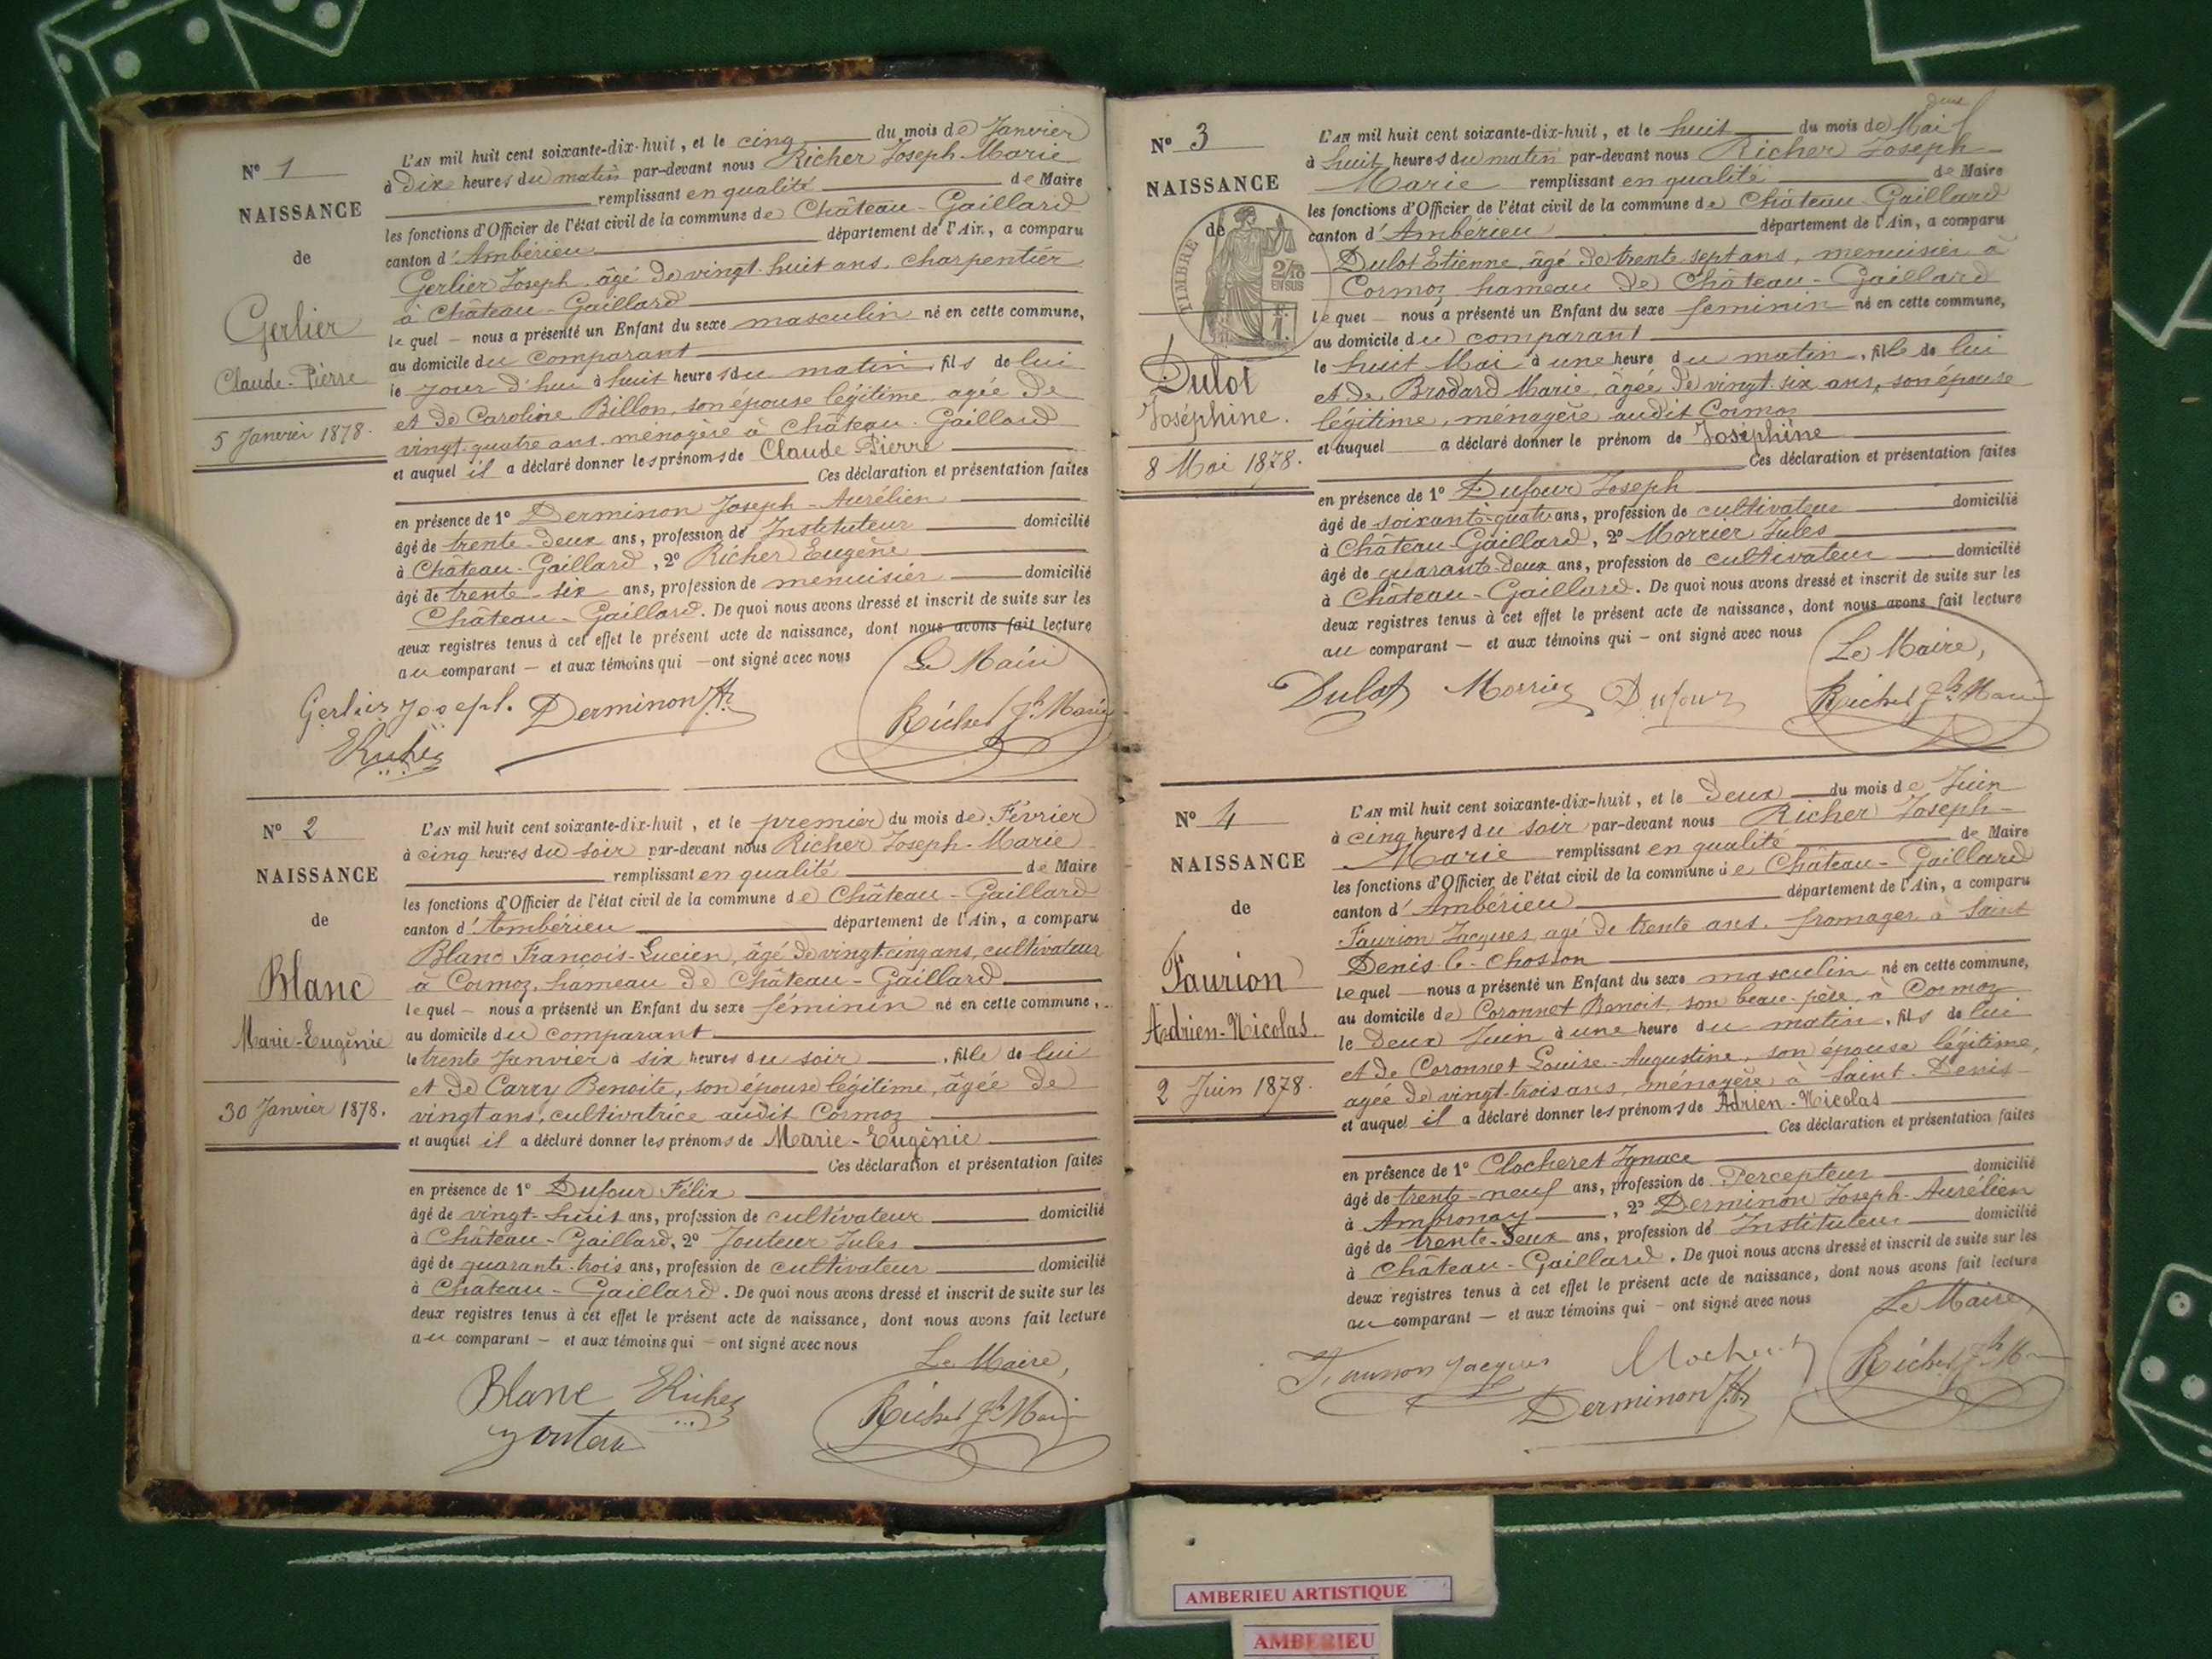 N° 1
NAISSANCE
de
Gerlier
Claude-Pierre
5 Janvier 1878.
L'AN mil huit cent soixante-dix-huit, et le cinq du mois de Janvier
à dix heures du matin par-devant nous Richer Joseph-Marie
remplissant en qualité de Maire
les fonctions d'Officier de l'état civil de la commune de Château-Gaillard
canton d'Ambérieu département de l'Ain, a comparu
Gerlier Joseph âgé de vingt-huit ans, charpentier
à Château-Gaillard
lequel — nous a présenté un Enfant du sexe masculin né en cette commune,
au domicile du comparant
le jour d'hui à huit heures du matin, fils de lui
et de Caroline Billon, son épouse légitime, agée de
vingt-quatre ans, ménagère à Château-Gaillard
et auquel il a déclaré donner les prénoms de Claude Pierre
Ces déclaration et présentation faites
en présence de 1° Derminon Joseph-Aurélien
âgé de trente-deux ans, profession de Instituteur domicilié
à Château-Gaillard, 2° Richer Eugène
âgé de trente-six ans, profession de menuisier domicilié
Château-Gaillard. De quoi nous avons dressé et inscrit de suite sur les
deux registres tenus à cet effet le présent acte de naissance, dont nous avons fait lecture
au comparant — et aux témoins qui — ont signé avec nous
Le Maire
Gerlier Joseph. Derminon JA Richer Jh Marie
ERicher
N° 2
NAISSANCE
de
Blanc
Marie-Eugénie
30 Janvier 1878.
L'AN mil huit cent soixante-dix-huit, et le premier du mois de Février
à cinq heures du soir par-devant nous Richer Joseph-Marie
remplissant en qualité de Maire
les fonctions d'Officier de l'état civil de la commune de Château-Gaillard
canton d'Ambérieu département de l'Ain, a comparu
Blanc François-Lucien, âgé de vingt-cinq ans, cultivateur
à Cormoz, hameau de Château-Gaillard
lequel — nous a présenté un Enfant du sexe féminin né en cette commune,
au domicile du comparant
le trente Janvier à six heures du soir, fille de lui
et de Carry Benoite, son épouse légitime, âgée de
vingt ans, cultivatrice audit Cormoz
et auquel il a déclaré donner les prénoms de Marie-Eugénie
Ces déclaration et présentation faites
en présence de 1° Dufour Félix
âgé de vingt-huit ans, profession de cultivateur domicilié
à Château-Gaillard, 2° Jouteur Jules
âgé de quarante-trois ans, profession de cultivateur domicilié
à Château-Gaillard. De quoi nous avons dressé et inscrit de suite sur les
deux registres tenus à cet effet le présent acte de naissance, dont nous avons fait lecture
au comparant — et aux témoins qui — ont signé avec nous
Le Maire,
Blanc ERicher Richer Jh Marie
N° 3
NAISSANCE
de
TIMBRE
2/10
EN SUS
Dulot
Joséphine.
8 Mai 1878.
L'AN mil huit cent soixante-dix-huit, et le huit du mois de Mai
à huit heures du matin par-devant nous Richer Joseph-
Marie remplissant en qualité de Maire
les fonctions d'Officier de l'état civil de la commune de Château-Gaillard
canton d'Ambérieu département de l'Ain, a comparu
Dulot Etienne, âgé de trente-sept ans, menuisier à
Cormoz, hameau de Château-Gaillard
lequel — nous a présenté un Enfant du sexe feminin né en cette commune,
au domicile du comparant
le huit Mai à une heure du matin, fille de lui
et de Brodard Marie, âgée de vingt-six ans, son épouse
légitime, ménagère audit Cormoz
et auquel a déclaré donner le prénom de Joséphine
Ces déclaration et présentation faites
en présence de 1° Dufour Joseph
âgé de soixante-quatre ans, profession de cultivateur domicilié
à Château-Gaillard, 2° Morrier Jules
âgé de quarante-deux ans, profession de cultivateur domicilié
à Château-Gaillard. De quoi nous avons dressé et inscrit de suite sur les
deux registres tenus à cet effet le présent acte de naissance, dont nous avons fait lecture
au comparant — et aux témoins qui — ont signé avec nous
Le Maire,
Dulot Morrier Dufour Richer Jh Marie
N° 4
NAISSANCE
de
Faurion
Adrien-Nicolas.
2 Juin 1878.
L'AN mil huit cent soixante-dix-huit, et le deux du mois de Juin
à cinq heures du soir par-devant nous Richer Joseph-
Marie remplissant en qualité de Maire
les fonctions d'Officier de l'état civil de la commune de Château-Gaillard
canton d'Ambérieu département de l'Ain, a comparu
Faurion Jacques, agé de trente ans, fromager à Saint
Denis-le-Chosson
lequel — nous a présenté un Enfant du sexe masculin né en cette commune,
au domicile de Coronnet Benoit, son beau-père, à Cormoz
le deux Juin à une heure du matin, fils de lui
et de Coronnet Louise-Augustine, son épouse légitime,
agée de vingt-trois ans, ménagère à Saint-Denis
et auquel il a déclaré donner les prénoms de Adrien-Nicolas
Ces déclaration et présentation faites
en présence de 1° Clocheret Ignace
âgé de trente-neuf ans, profession de Percepteur domicilié
à Ambronay, 2° Derminon Joseph-Aurélien
âgé de trente-deux ans, profession de Instituteur domicilié
à Château-Gaillard. De quoi nous avons dressé et inscrit de suite sur les
deux registres tenus à cet effet le présent acte de naissance, dont nous avons fait lecture
au comparant — et aux témoins qui — ont signé avec nous
Le Maire,
Faurion Jacques Richer Jh M
Derminon JA
AMBERIEU ARTISTIQUE
AMBERIEU